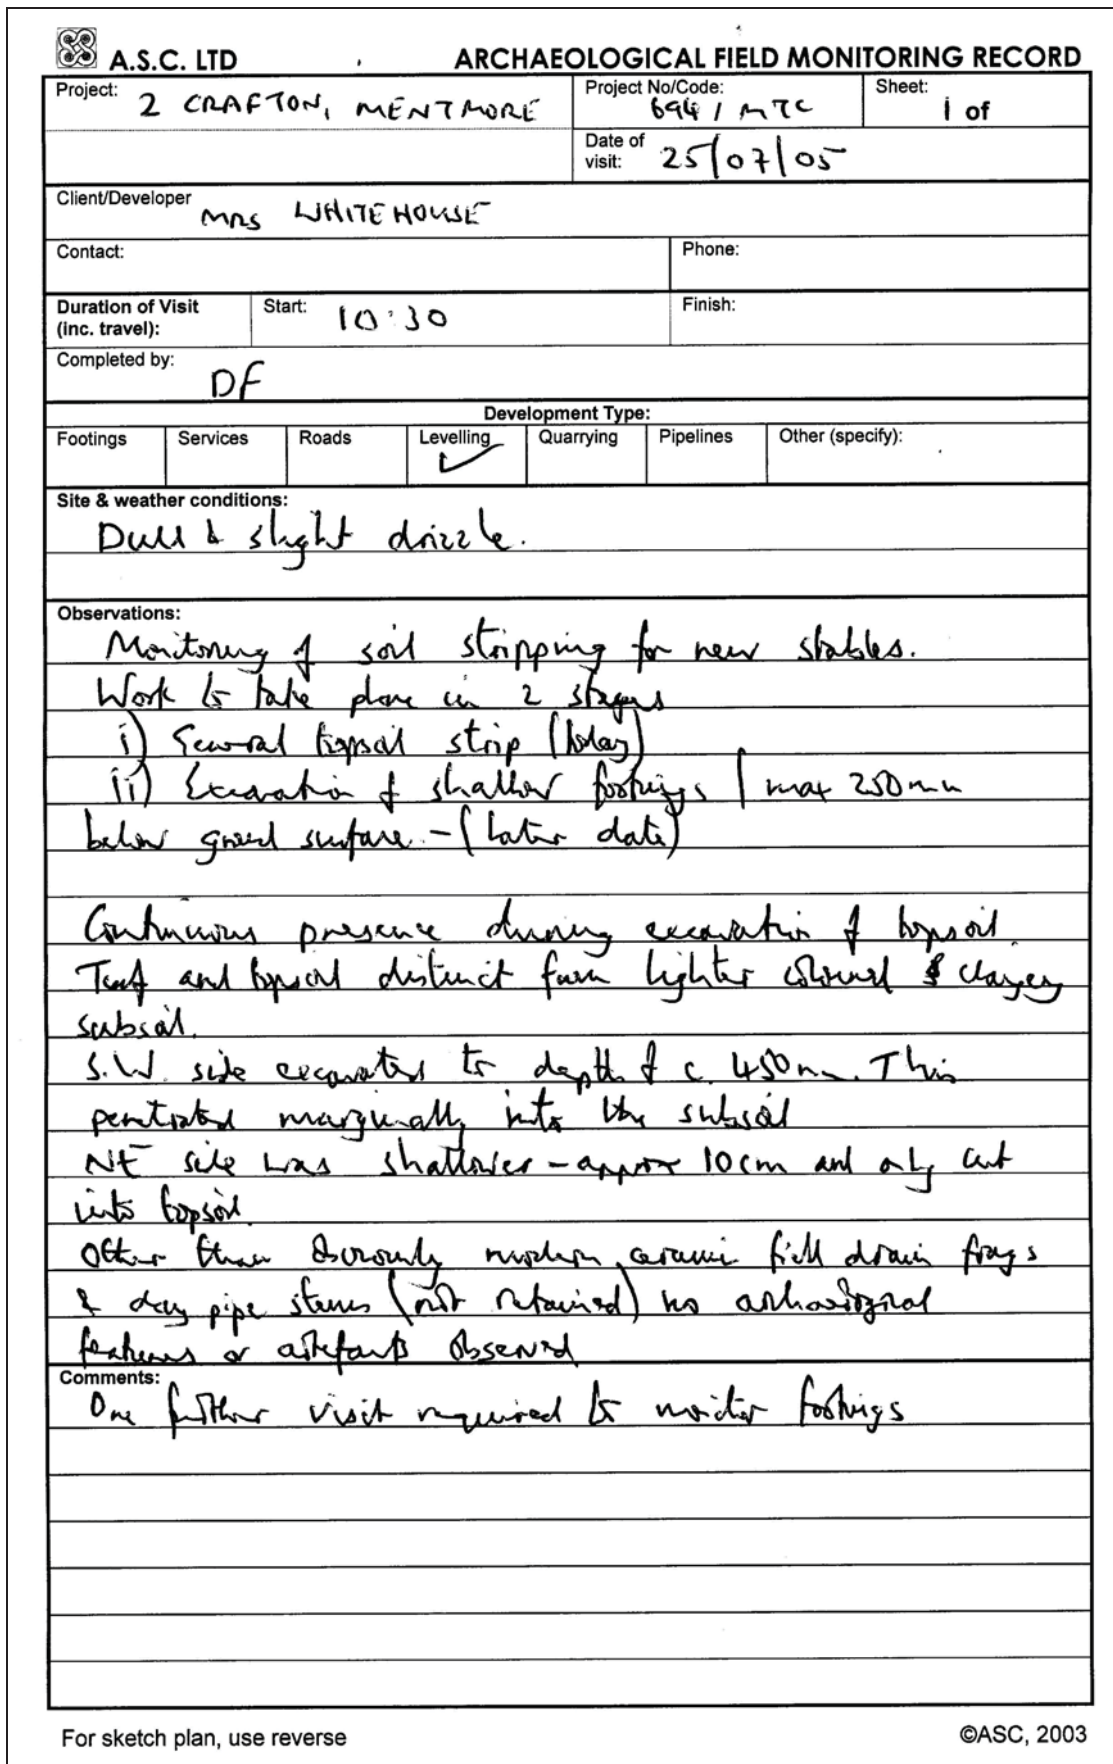 A.S.C. LTD
ARCHAEOLOGICAL FIELD MONITORING RECORD
Project: 2 CRAFTON, MENTMORE
Project No/Code: 694 / MTC
Sheet: 1 of
Date of visit: 25/07/05
Client/Developer MRS WHITEHOUSE
Contact:
Phone:
Duration of Visit (inc. travel):
Start: 10:30
Finish:
Completed by: DF
Development Type:
Footings Services Roads Levelling ✓ Quarrying Pipelines Other (specify):
Site & weather conditions:
Dull & slight drizzle.
Observations:
Monitoring of soil stripping for new stables.
Work to take place in 2 stages
i) General topsoil strip (today)
ii) Excavation of shallow footings (max 250mm
below ground surface - (later date)
Continuous presence during excavation of topsoil.
Turf and topsoil distinct from lighter coloured clayey
subsoil.
S.W. side excavated to depth of c. 450mm. This
penetrated marginally into the subsoil
NE side was shallower - approx 10cm and only cut
into topsoil.
Other than modern ceramic field drain frags
& clay pipe stems (not retained) no archaeological
features or artefacts observed
Comments:
One further visit required to monitor footings
For sketch plan, use reverse
©ASC, 2003